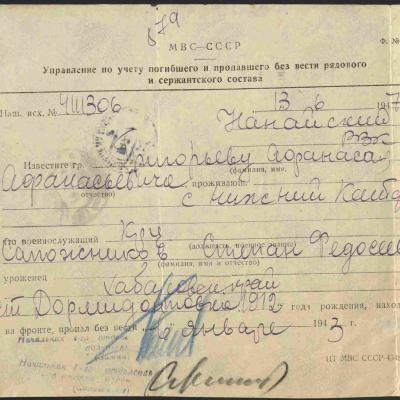 879
МВС—СССР
Ф. №
Управление по учету погибшего и пропавшего без вести рядового
и сержантского состава
Наш. исх. № 4111306
13 6 1947
Нанайский
РВК
Известите гр. Григорьеву Афанаса
(фамилия, имя,
Афанасьевича проживающ.
отчество)
с Нижний
что военнослужащий
(должность, военное звание)
Сапожников Степан Федосеев
(фамилия, имя и отчество)
уроженец Хабаровский край
ст Дормидонтовка 1912 года рождения, находя
на фронте, пропал без вести - январе 1943 г.
Начальник 1-го отдела
Начальник 1-го отделения
ИТ МВС СССР